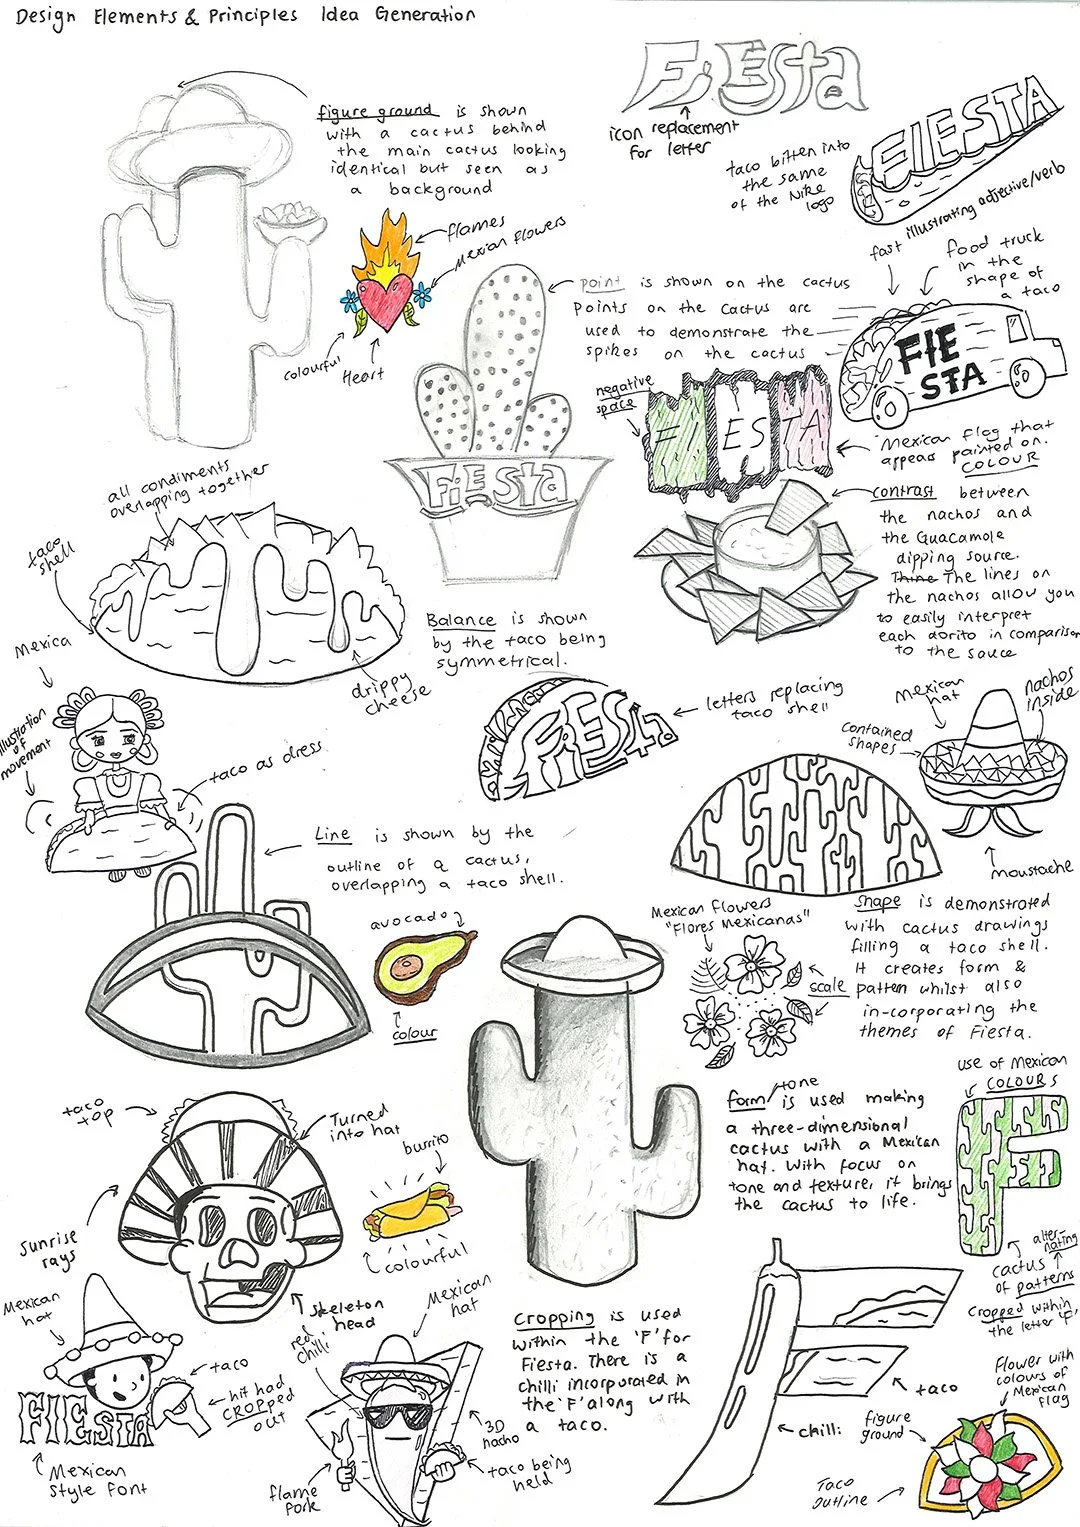 Design Elements & Principles Idea Generation
figure ground is shown
with a cactus behind
the main cactus looking
identical but seen as
a background
FiEsta
icon replacement
for letter
FIESTA
taco bitten into
the same
of the Nike
logo
flames
Mexian flowers
colourful
Heart
point is shown on the cactus
Points on the Cactus are
used to demonstrate the
spikes on the cactus
fast illustrating adjective/verb
food truck
in the
shape of
a taco
FIE
STA
negative
space
FIESTA
Mexican Flag that
appears painted on.
COLOUR
FiEsta
all condiments
overlapping together
taco
shell
drippy
cheese
Balance is shown
by the taco being
symmetrical.
contrast between
the nachos and
the Guacamole
dipping source.
Thine The lines on
the nachos allow you
to easily interpret
each dorito in comparison
to the sauce
Mexica
illustration
of
movement
taco as dress
FiEsta
letters replacing
taco shell
Mexican
hat
nachos
inside
contained
shapes
moustache
Line is shown by the
outline of a cactus,
overlapping a taco shell.
avocado
colour
Mexican Flowers
"Flores Mexicanas"
scale
Shape is demonstrated
with cactus drawings
filling a taco shell.
It creates form &
pattern whilst also
in-corporating the
themes of Fiesta.
form/tone
is used making
a three-dimensional
cactus with a Mexican
hat. With focus on
tone and texture, it brings
the cactus to life.
use of Mexican
COLOURS
cactus alternating
of patterns
Cropped within
the letter 'F'
taco
top
Turned
into hat
sunrise
rays
skeleton
head
burrito
colourful
Mexican
hat
taco
hit had
CROPPED
out
FIESTA
Mexican
Style font
red
chilli
Mexican
hat
3D
nacho
flame
fork
taco being
held
Cropping is used
within the 'F' for
Fiesta. There is a
chilli incorporated in
the 'F' along with
a taco.
taco
chilli
figure
ground
Flower with
colours of
Mexican
flag
Taco
outline